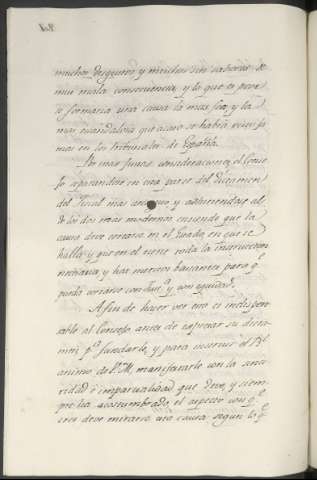 muchos disgustos y muchos sin sabores de
mui mala consecuencia, y lo que es peor
se formaria una causa la mas fea, y la
mas escandalosa que acaso se habrá visto ja
mas en los tribunales de España.
Por mas justas consideraciones el Conse
jo apartandose en esta parte del Dictamen
del Fiscal mas antiguo y adhiriendose al
de los dos mas modernos entiende que la
causa debe cortarse en el Estado, en que se
halla, y que en el tiene toda la instruccion
necesaria, y hai meritos bastantes para q.e
pueda cortarse con y con equidad.
A fin de hacer ver esto es indispen
sable al Consejo antes de exponer su dicta
men, p.a fundarle, y para instruir el R.l
animo de V.M. manifestarle con la since
ridad e imparcialidad que debe, y siem
pre ha acostumbrado, el aspecto con q.e
cree debe mirarse esta causa segun lo q.e